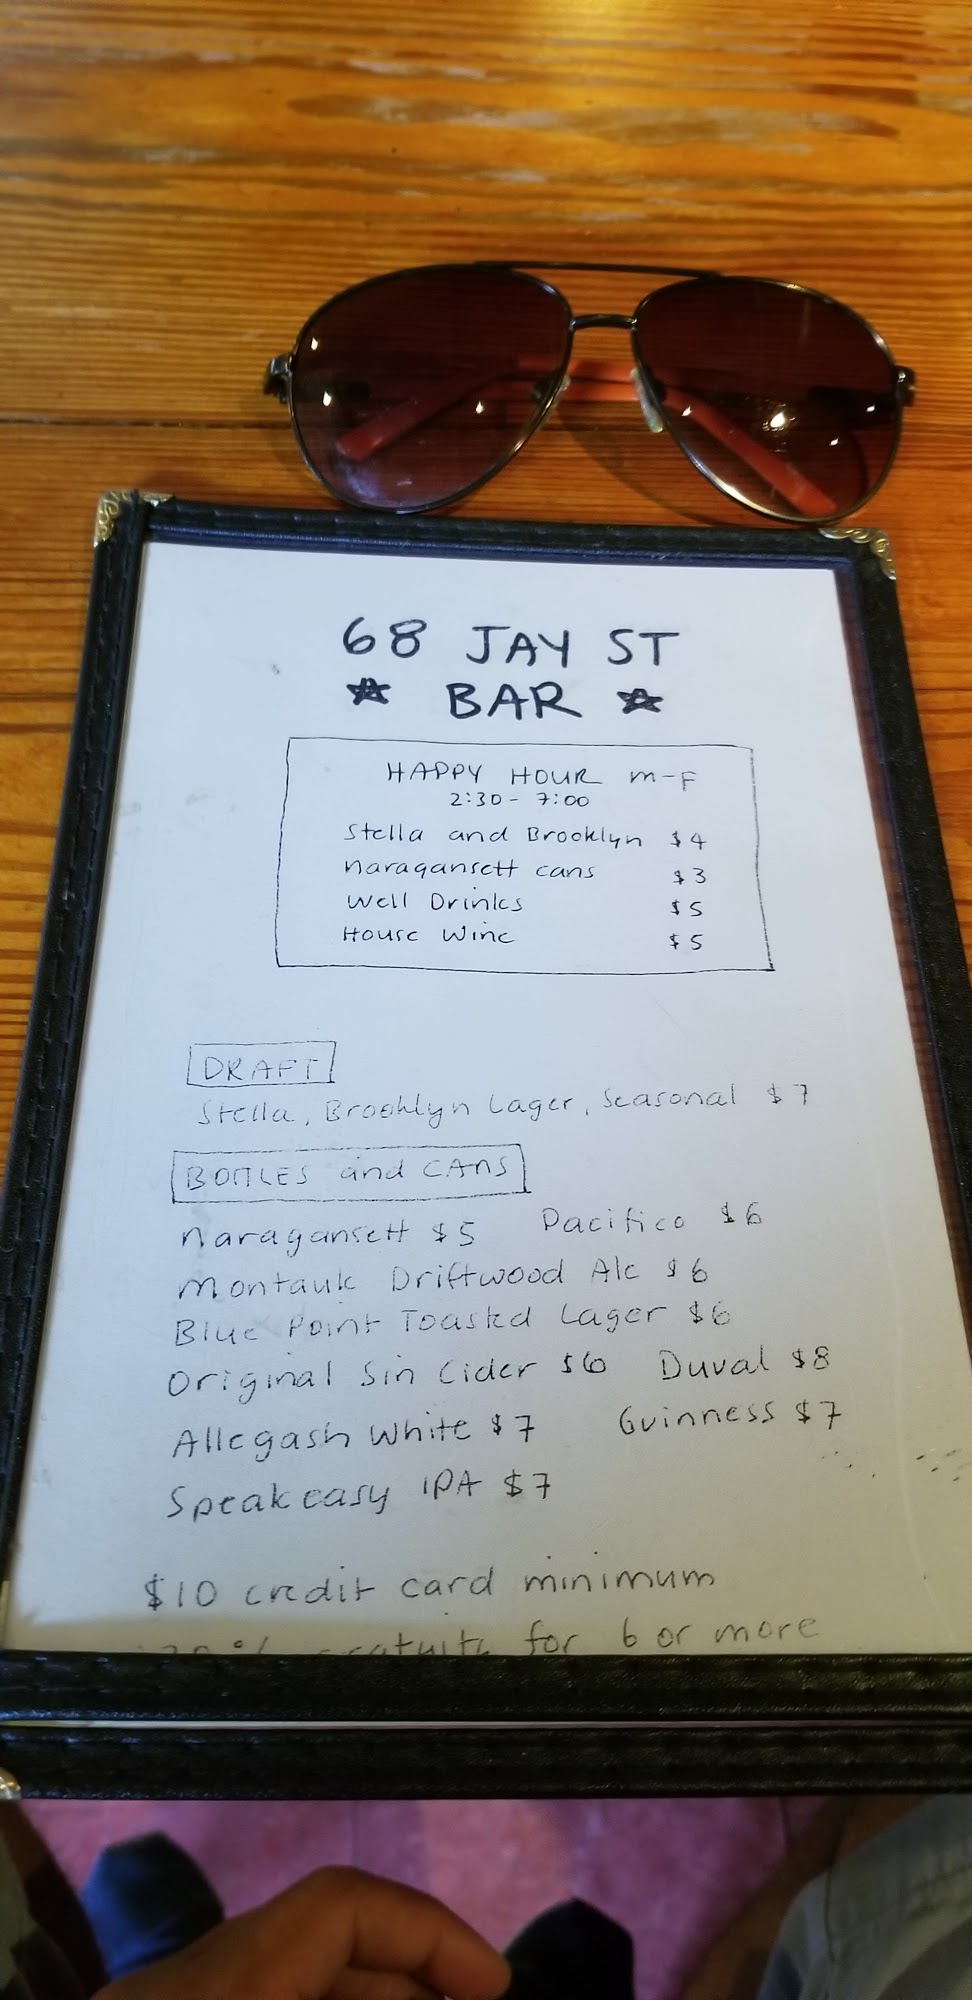 68 JAY ST
BAR
HAPPY HOUR M-F
2:30 - 7:00
Stella and Brooklyn $4
Naragansett cans $3
Well Drinks $5
House Wine $5
DRAFT
Stella, Brooklyn Lager, Seasonal $7
BOTTLES and CANS
Naragansett $5 Pacifico $6
Montauk Driftwood Ale $6
Blue Point Toasted Lager $6
Original Sin Cider $6 Duval $8
Allegash White $7 Guinness $7
Speakeasy IPA $7
$10 credit card minimum
20% gratuity for 6 or more